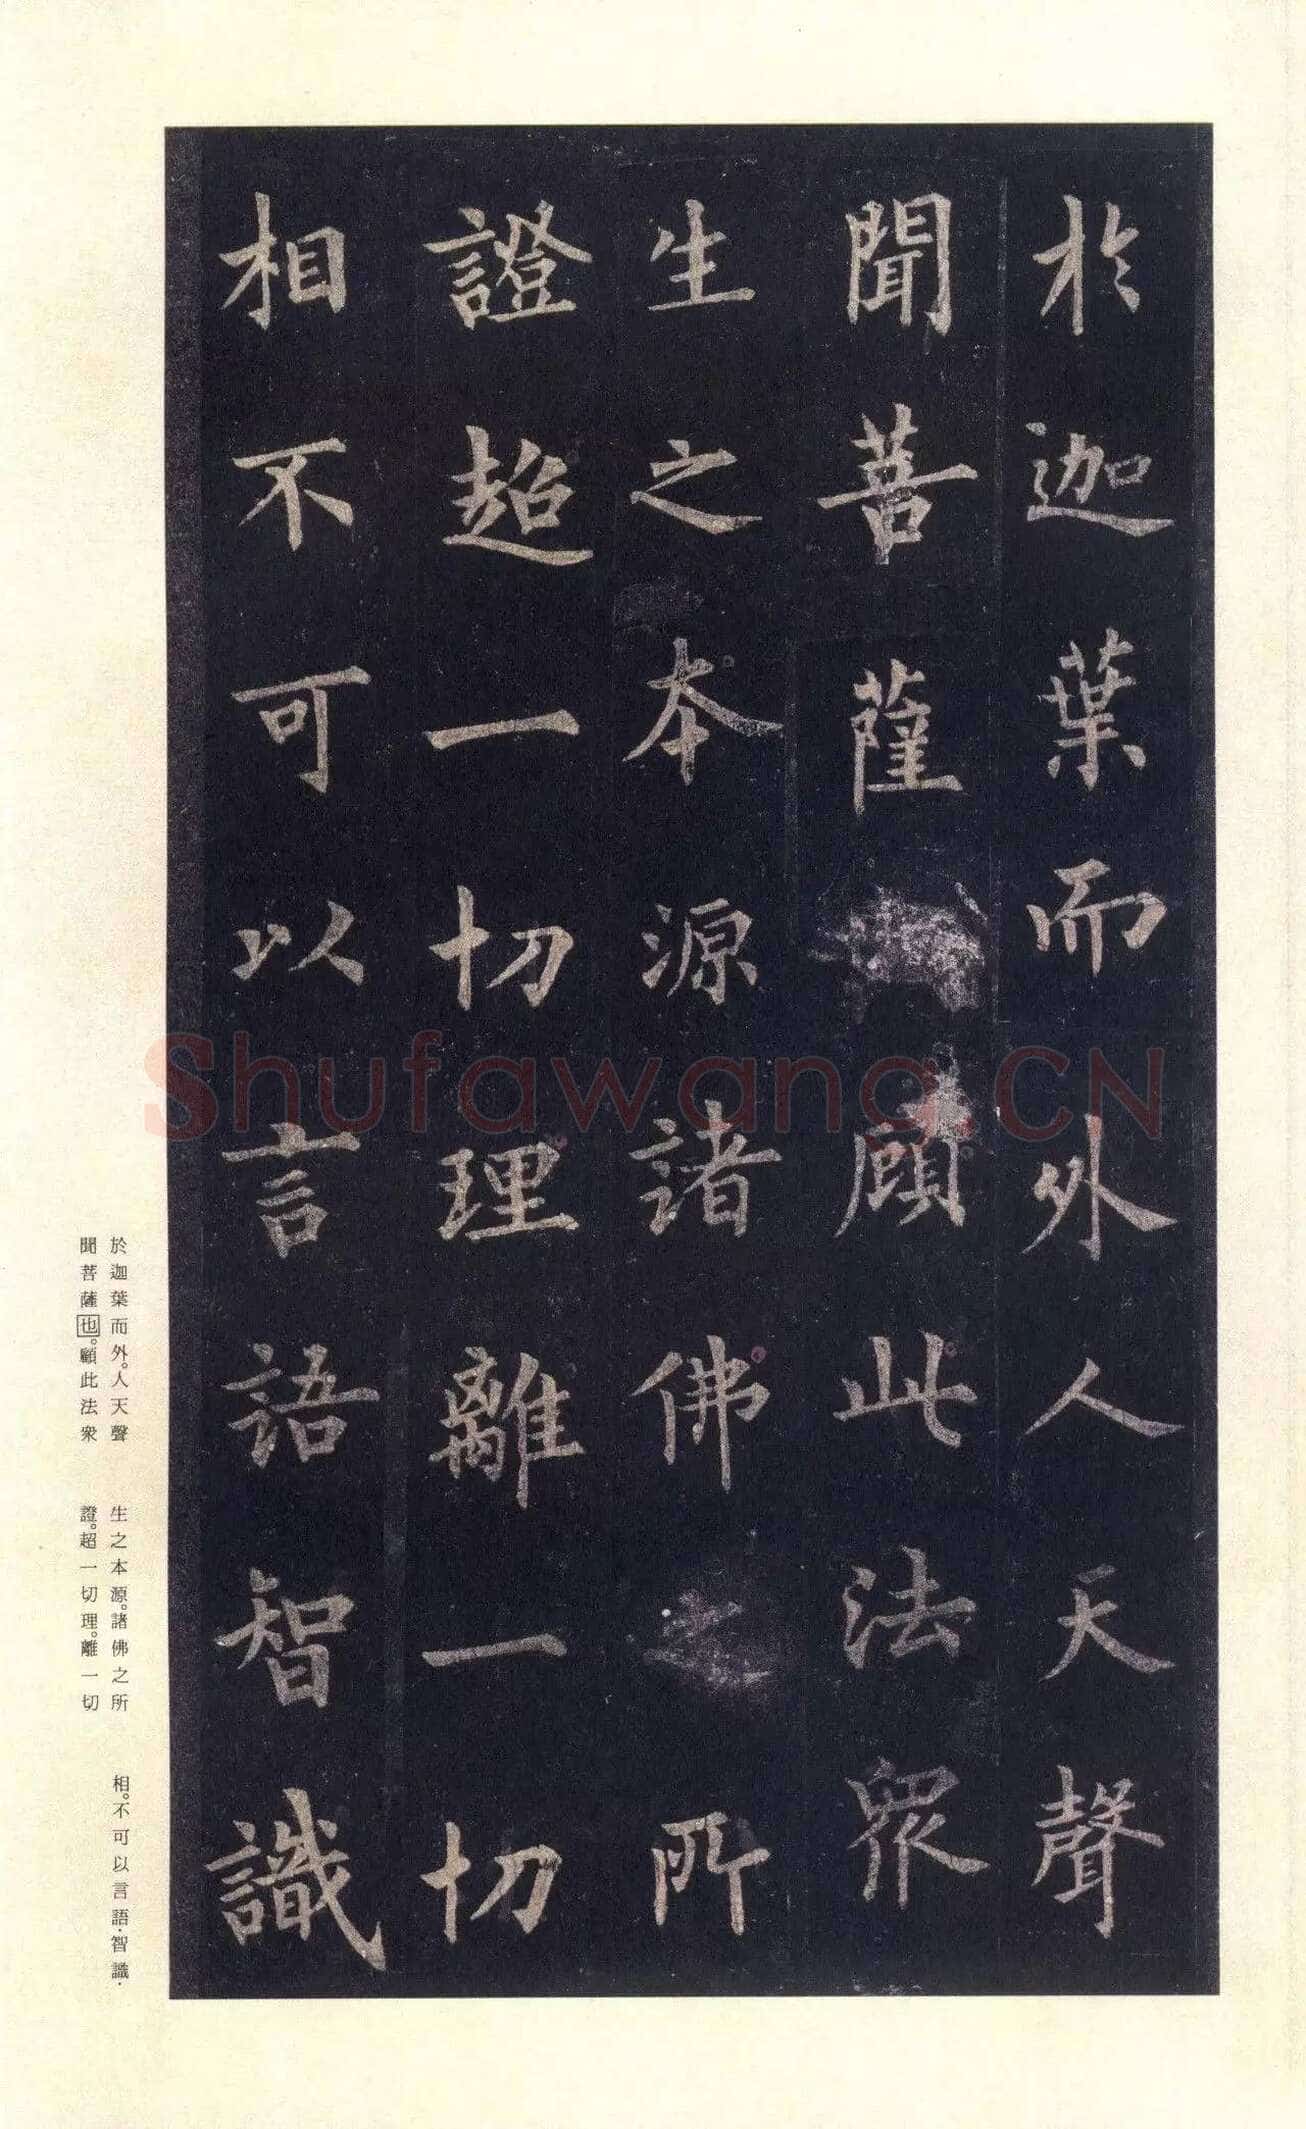 於迦葉而外人天聲
聞菩薩顧此法眾
生之本源諸佛所
證超一切理離一切
相不可以言語智識
於迦葉而外。人天聲
聞菩薩也。顧此法衆
生之本源。諸佛之所
證。超一切理。離一切
相。不可以言語·智識·
Shufawang.CN